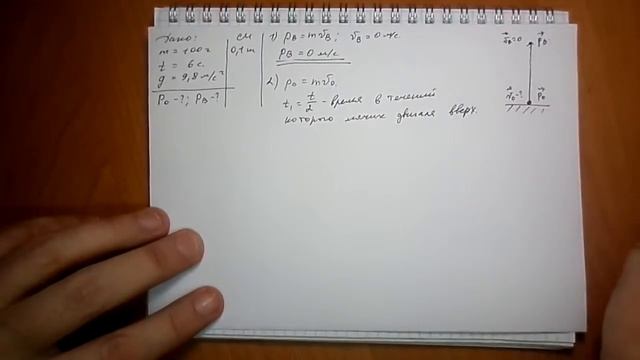 Дано: СИ
m = 100 г 0,1 т
t = 6 с.
g = 9,8 м/с²
p₀ - ?; pв - ?
1) pв = mvв; vв = 0 м/с.
pв = 0 м/с
2) p₀ = mv₀.
t₁ = t/2 - время в течений
которого мячик двигался вверх.
vв=0 pв
v₀-? p₀